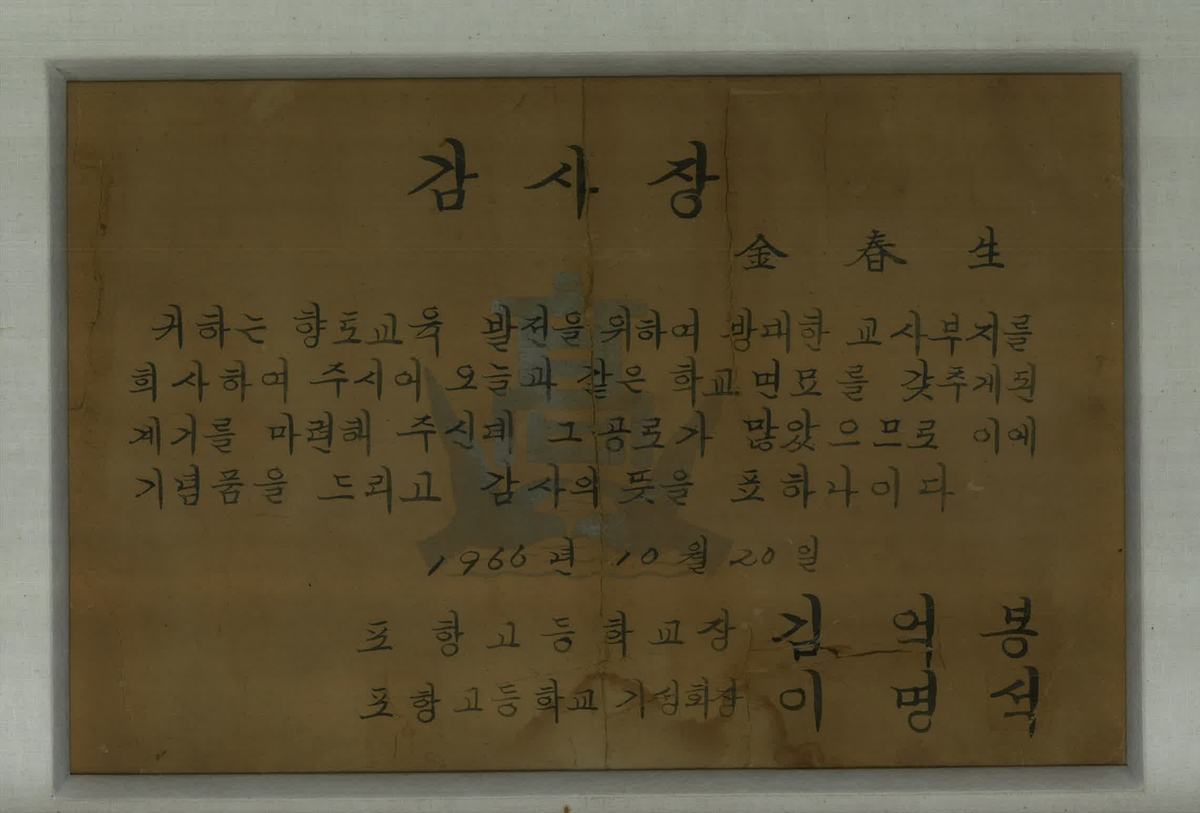 감사장
金春生
귀하는 향토교육 발전을 위하여 방대한 교사부지를
희사하여 주시어 오늘과 같은 학교면모를 갖추게된
계기를 마련해 주신데 그 공로가 많았으므로 이에
기념품을 드리고 감사의 뜻을 표하나이다
1966년 10월 20일
포항고등학교장 김억봉
포항고등학교 기성회장 이명석